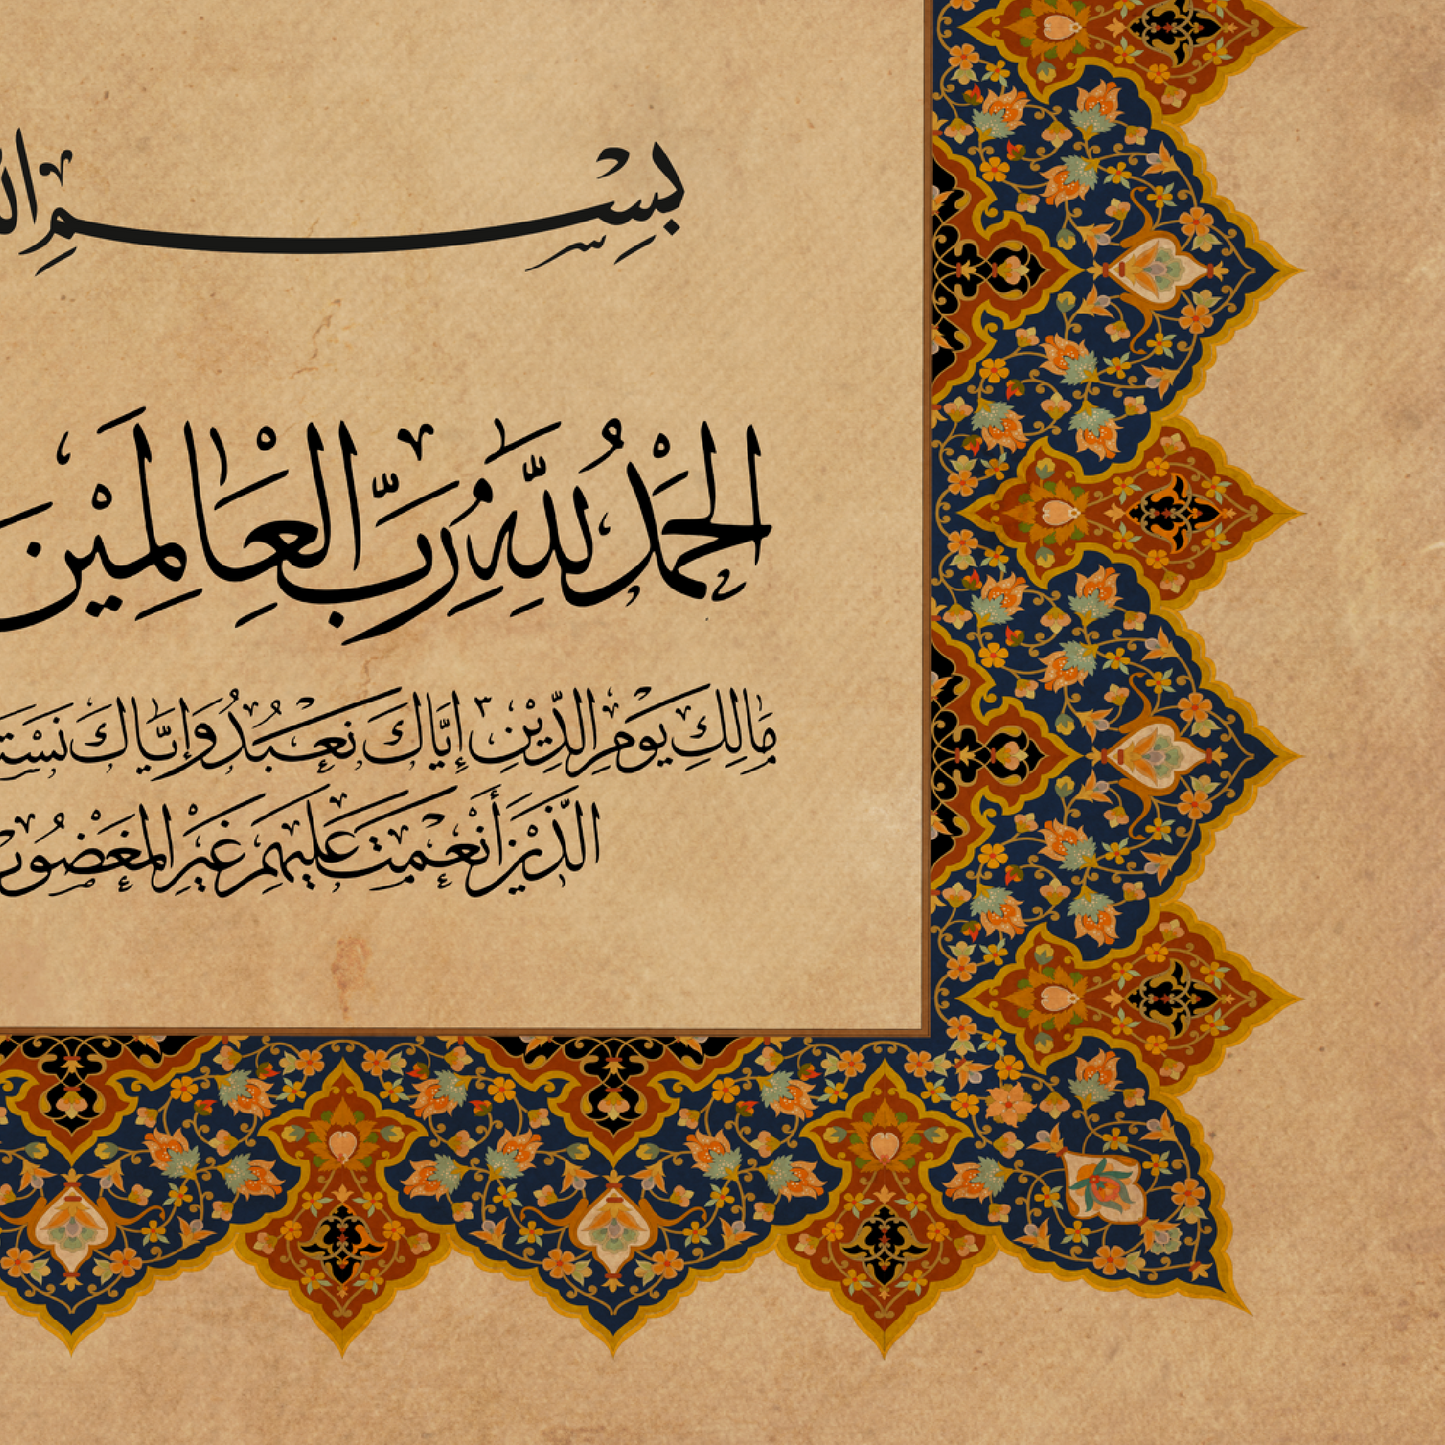 بِسْمِ
الْحَمْدُ لِلَّهِ رَبِّ الْعَالَمِيْنَ
مَالِكِ يَوْمِ الدِّيْنِ ٣ إِيَّاكَ نَعْبُدُ وَإِيَّاكَ
الَّذِيْنَ أَنْعَمْتَ عَلَيْهِمْ غَيْرِ